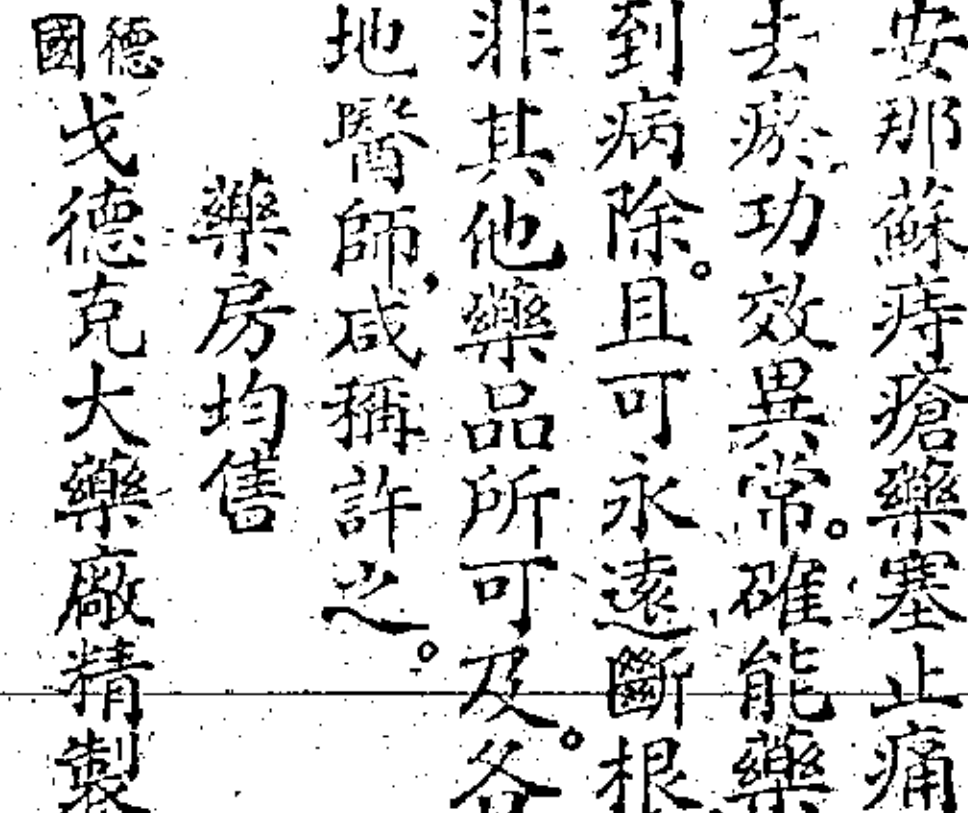 安那蘇痔瘡藥塞止痛
去瘀功效異常。確能藥
到病除。且可永遠斷根
非其他藥品所可及。各
地醫師,咸稱許之。
藥房均售
德國戈德克大藥廠精製